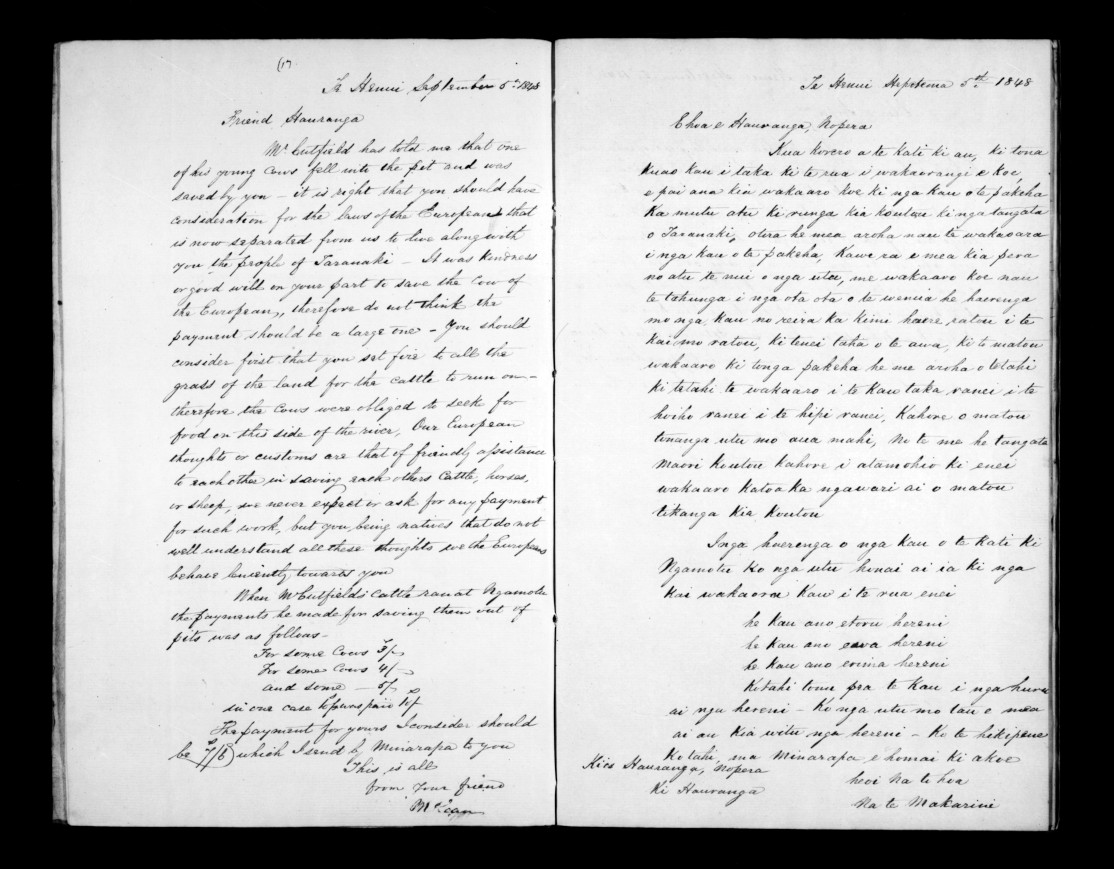 (17
Te Henui September 5th 1848
Friend Hauranga
Mr Cutfield has told me that one
of his young Cows fell into the pit and was
saved by you - it is right that you should have
consideration for the laws of the European that
is now separated from us to live along with
you the people of Taranaki - It was kindness
or good will on your part to save the Cow of
the European, therefore do not think the
payment should be a large one - You should
consider first that you set fire to all the
grass of the land for the cattle to run on -
therefore the cows were obliged to seek for
food on this side of the river, Our European
thoughts or customs are that of friendly assistance
to each other in saving each others Cattle, horses,
or sheep, we never expect or ask for any payment
for such work, but you being natives that do not
well understand all these thoughts we the Europeans
behave leniently towards you
When Mr Cutfield's Cattle ran at Ngamotu
the payments he made for saving them out of
pits was as follows -
For some Cows 3/-
For some Cows 4/-
and some - 5/-
in one case was paid 10/-
The payment for yours I consider should
be 7/6 which I send by Minarapa to you
This is all
from your friend
McLean
Te Henui Hepetema 5th 1848
E hoa e Hauranga, Nopera
Kua korero a te Kati ki au, ki tona
kuao kau i taka ki te rua i wakaorangi e koe,
e pai ana kia wakaaro koe ki nga kau o te pakeha
Ka mutu atu ki runga kia koutou ki nga tangata
o Taranaki, otira he mea aroha nau te wakaoara
i nga kau o te pakeha, Kawe ra e mea kia pera
no atu te nui o nga utu, me wakaaro koe nau
te tahunga i nga ota ota o te wenua he haerenga
mo nga kau no reira ka kimi haere ratou i te
kai mo ratou, ki tenei taha o te awa, ki te matou
wakaaro ki tonga pakeha he me aroha o tetahi
ki tetahi te wakaaro i te Kau taka ranei i te
hoiho ranei i te hipi ranei, Kahore o matou
tonanga utu mo aua mahi, No te me he tangata
Maori koutou kahore i atamohio ki enei
wakaaro katoa ka ngawari ai o matou
tikanga kia koutou
I nga huerenga o nga kau o te Kati ki
Ngamotu ko nga utu honai ai ia ki nga
kai wakaora kau i te rua enei
he kau ano etoru hereni
he kau ano ewa hereni
he kau ano erima hereni
Kotahi tonu pea te kau i nga huru
ai nga hereni - Ko nga utu mo tau e mea
ai au kia witu nga hereni - Ko te hikipene
Kotahi, ma Minarapa e homai ki a koe
heoi Na te hoa
Na te Makarini
Kia Hauranga, Nopera
Ki Hauranga